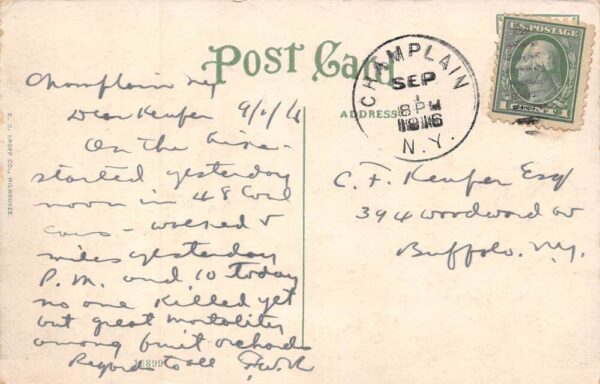 POST CARD
CHAMPLAIN
SEP
1
8 PM
1916
N.Y.
U.S. POSTAGE
1 CENT 1
ADDRESS
E. C. KROPP CO., MILWAUKEE
Champlain NY
Dear Keufer 9/1/16
On the hike -
started yesterday
noon in 48 Coal
cars - walked 8
miles yesterday
P.M. and 10 today
no one killed yet
but great mortality
among fruit orchards
Regards to all
16899
C. F. Keufer Esq
394 Woodward av
Buffalo. N.Y.